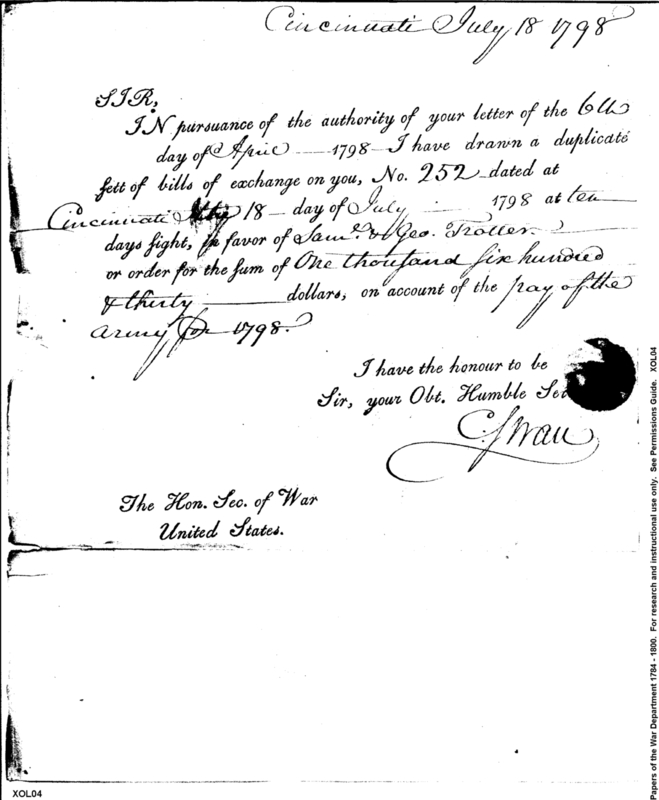 Cincinnati July 18 1798
SIR,
IN pursuance of the authority of your letter of the 6th
day of April 1798 I have drawn a duplicate
sett of bills of exchange on you, No. 252 dated at
Cincinnati 18 day of July 1798 at ten
days sight, in favor of Saml. & Geo. Trotter
or order for the sum of One thousand six hundred
& thirty dollars, on account of the pay of the
army for 1798.
I have the honour to be
Sir, your Obt. Humble
C. Swan
The Hon. Sec. of War
United States.
XOL04
Papers of the War Department 1784 - 1800. For research and instructional use only. See Permissions Guide. XOL04